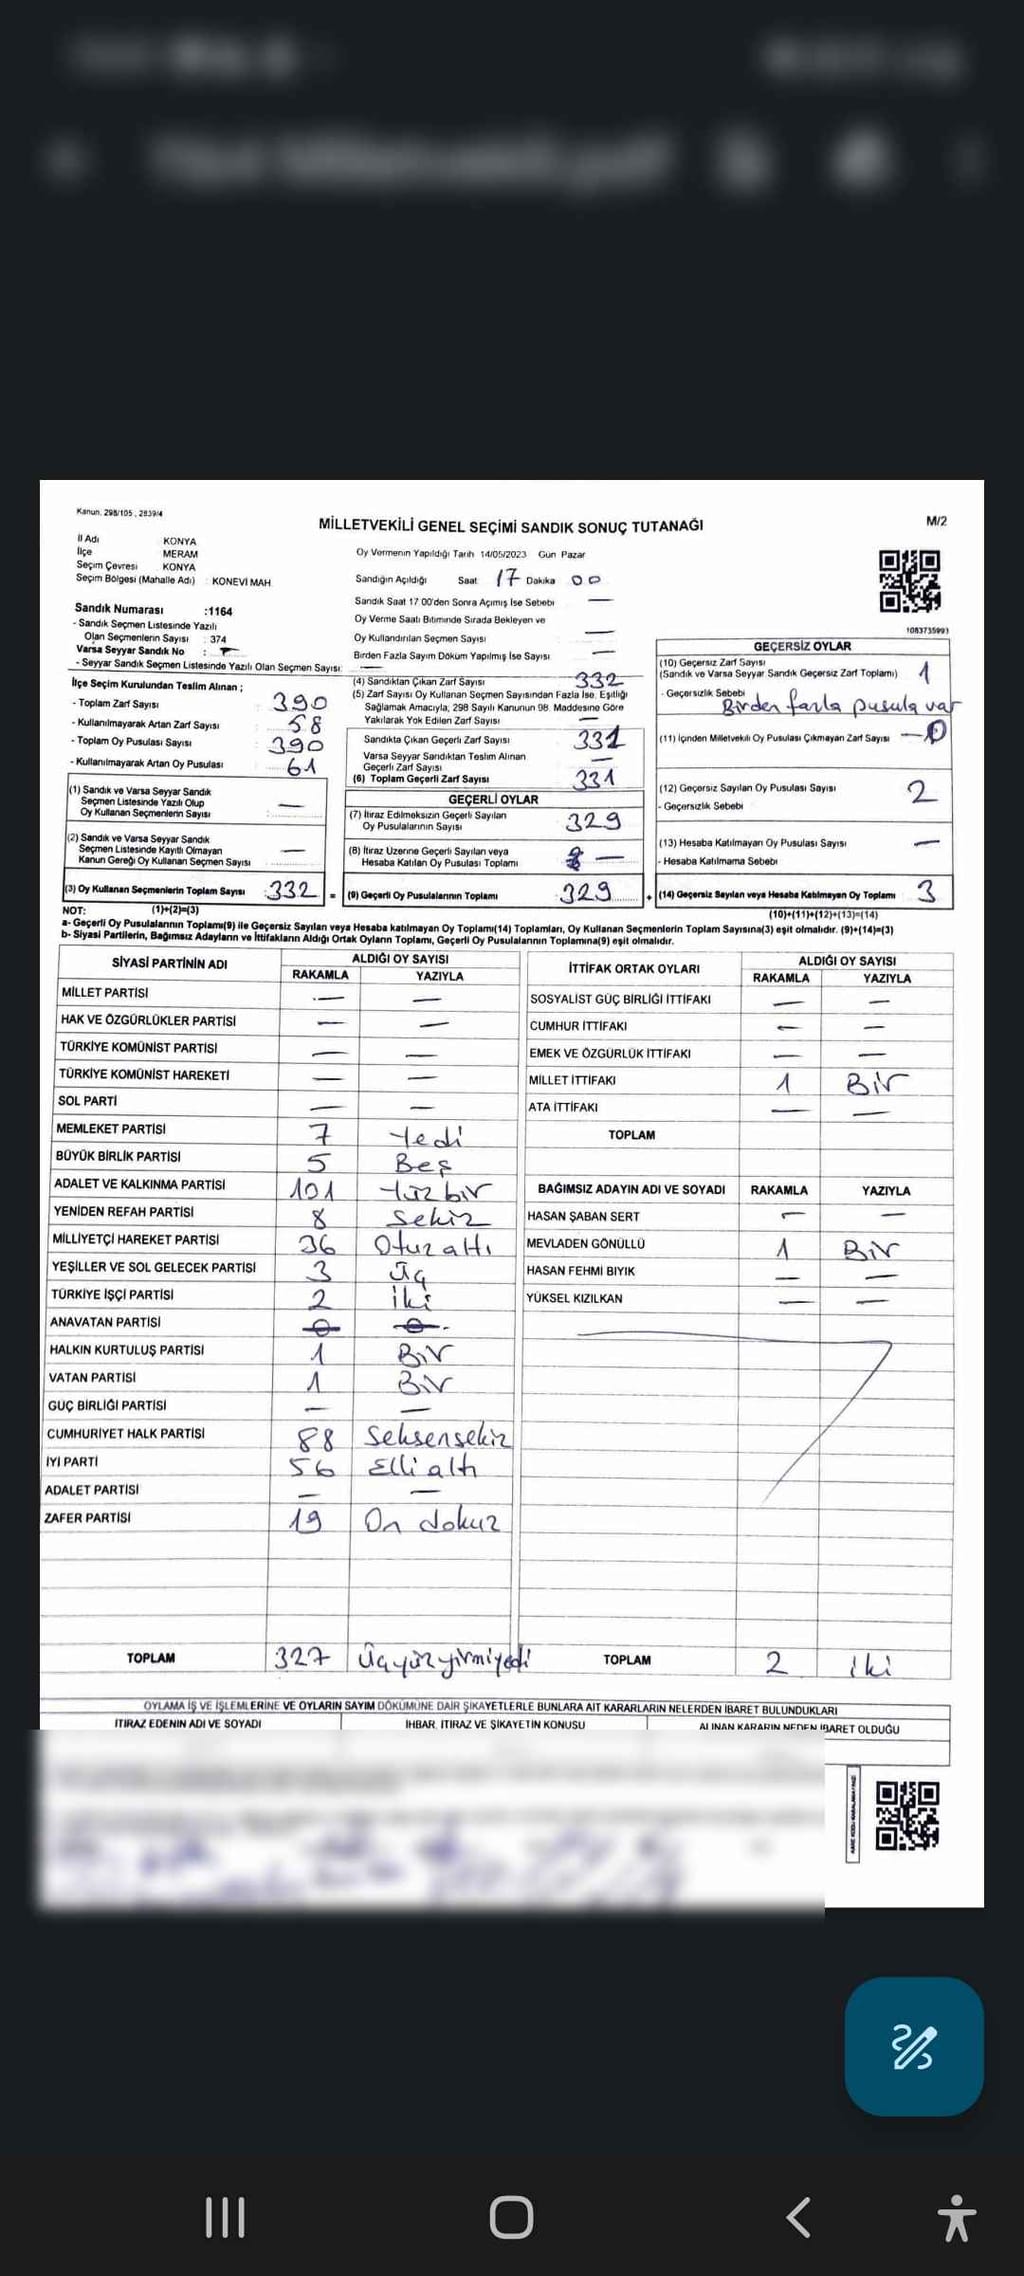 Kanun, 298/105 , 2839/4
MİLLETVEKİLİ GENEL SEÇİMİ SANDIK SONUÇ TUTANAĞI
M/2
İl Adı KONYA
İlçe MERAM
Seçim Çevresi KONYA
Seçim Bölgesi (Mahalle Adı) : KONEVİ MAH.
Sandık Numarası :1164
- Sandık Seçmen Listesinde Yazılı
Olan Seçmenlerin Sayısı : 374
Varsa Seyyar Sandık No :
- Seyyar Sandık Seçmen Listesinde Yazılı Olan Seçmen Sayısı: —
İlçe Seçim Kurulundan Teslim Alınan ;
- Toplam Zarf Sayısı 390
- Kullanılmayarak Artan Zarf Sayısı 58
- Toplam Oy Pusulası Sayısı 390
- Kullanılmayarak Artan Oy Pusulası 61
(1) Sandık ve Varsa Seyyar Sandık
Seçmen Listesinde Yazılı Olup
Oy Kullanan Seçmenlerin Sayısı —
(2) Sandık ve Varsa Seyyar Sandık
Seçmen Listesinde Kayıtlı Olmayan
Kanun Gereği Oy Kullanan Seçmen Sayısı —
(3) Oy Kullanan Seçmenlerin Toplam Sayısı 332 =
Oy Vermenin Yapıldığı Tarih 14/05/2023 Gün Pazar
Sandığın Açıldığı Saat 17 Dakika 00
Sandık Saat 17 00'den Sonra Açımış İse Sebebi —
Oy Verme Saati Bitiminde Sırada Bekleyen ve
Oy Kullandırılan Seçmen Sayısı —
Birden Fazla Sayım Döküm Yapılmış İse Sayısı —
(4) Sandıktan Çıkan Zarf Sayısı 332
(5) Zarf Sayısı Oy Kullanan Seçmen Sayısından Fazla İse, Eşitliği
Sağlamak Amacıyla, 298 Sayılı Kanunun 98. Maddesine Göre
Yakılarak Yok Edilen Zarf Sayısı —
Sandıkta Çıkan Geçerli Zarf Sayısı 331
Varsa Seyyar Sandıktan Teslim Alınan
Geçerli Zarf Sayısı —
(6) Toplam Geçerli Zarf Sayısı 331
GEÇERLİ OYLAR
(7) İtiraz Edilmeksizin Geçerli Sayılan
Oy Pusulalarının Sayısı 329
(8) İtiraz Üzerine Geçerli Sayılan veya
Hesaba Katılan Oy Pusulası Toplamı —
(9) Geçerli Oy Pusulalarının Toplamı 329 +
108373599)
GEÇERSİZ OYLAR
(10) Geçersiz Zarf Sayısı
(Sandık ve Varsa Seyyar Sandık Geçersiz Zarf Toplamı) 1
- Geçersizlik Sebebi
Birden fazla pusula var
(11) İçinden Milletvekili Oy Pusulası Çıkmayan Zarf Sayısı — 0
(12) Geçersiz Sayılan Oy Pusulası Sayısı 2
- Geçersizlik Sebebi
(13) Hesaba Katılmayan Oy Pusulası Sayısı —
- Hesaba Katılmama Sebebi
(14) Geçersiz Sayılan veya Hesaba Katılmayan Oy Toplamı 3
NOT: (1)+(2)=(3)
(10)+(11)+(12)+(13)=(14)
a- Geçerli Oy Pusulalarının Toplamı(9) ile Geçersiz Sayılan veya Hesaba katılmayan Oy Toplamı(14) Toplamları, Oy Kullanan Seçmenlerin Toplam Sayısına(3) eşit olmalıdır. (9)+(14)=(3)
b- Siyasi Partilerin, Bağımsız Adayların ve İttifakların Aldığı Ortak Oyların Toplamı, Geçerli Oy Pusulalarının Toplamına(9) eşit olmalıdır.
SİYASİ PARTİNİN ADI ALDIĞI OY SAYISI
RAKAMLA YAZIYLA
MİLLET PARTİSİ — —
HAK VE ÖZGÜRLÜKLER PARTİSİ — —
TÜRKİYE KOMÜNİST PARTİSİ — —
TÜRKİYE KOMÜNİST HAREKETİ — —
SOL PARTİ — —
MEMLEKET PARTİSİ 7 Yedi
BÜYÜK BİRLİK PARTİSİ 5 Beş
ADALET VE KALKINMA PARTİSİ 101 Yüz bir
YENİDEN REFAH PARTİSİ 8 Sekiz
MİLLİYETÇİ HAREKET PARTİSİ 36 Otuz altı
YEŞİLLER VE SOL GELECEK PARTİSİ 3 Üç
TÜRKİYE İŞÇİ PARTİSİ 2 İki
ANAVATAN PARTİSİ 0 0
HALKIN KURTULUŞ PARTİSİ 1 Bir
VATAN PARTİSİ 1 Bir
GÜÇ BİRLİĞİ PARTİSİ — —
CUMHURİYET HALK PARTİSİ 88 Seksensekiz
İYİ PARTİ 56 Elli altı
ADALET PARTİSİ — —
ZAFER PARTİSİ 19 On dokuz
TOPLAM 327 Üçyüzyirmiyedi
İTTİFAK ORTAK OYLARI ALDIĞI OY SAYISI
RAKAMLA YAZIYLA
SOSYALİST GÜÇ BİRLİĞİ İTTİFAKI — —
CUMHUR İTTİFAKI — —
EMEK VE ÖZGÜRLÜK İTTİFAKI — —
MİLLET İTTİFAKI 1 Bir
ATA İTTİFAKI — —
TOPLAM
BAĞIMSIZ ADAYIN ADI VE SOYADI RAKAMLA YAZIYLA
HASAN ŞABAN SERT — —
MEVLADEN GÖNÜLLÜ 1 Bir
HASAN FEHMİ BIYIK — —
YÜKSEL KIZILKAN — —
TOPLAM 2 iki
OYLAMA İŞ VE İŞLEMLERİNE VE OYLARIN SAYIM DÖKÜMÜNE DAİR ŞİKAYETLERLE BUNLARA AİT KARARLARIN NELERDEN İBARET BULUNDUKLARI
İTİRAZ EDENİN ADI VE SOYADI İHBAR, İTİRAZ VE ŞİKAYETİN KONUSU ALINAN KARARIN NEDEN İBARET OLDUĞU